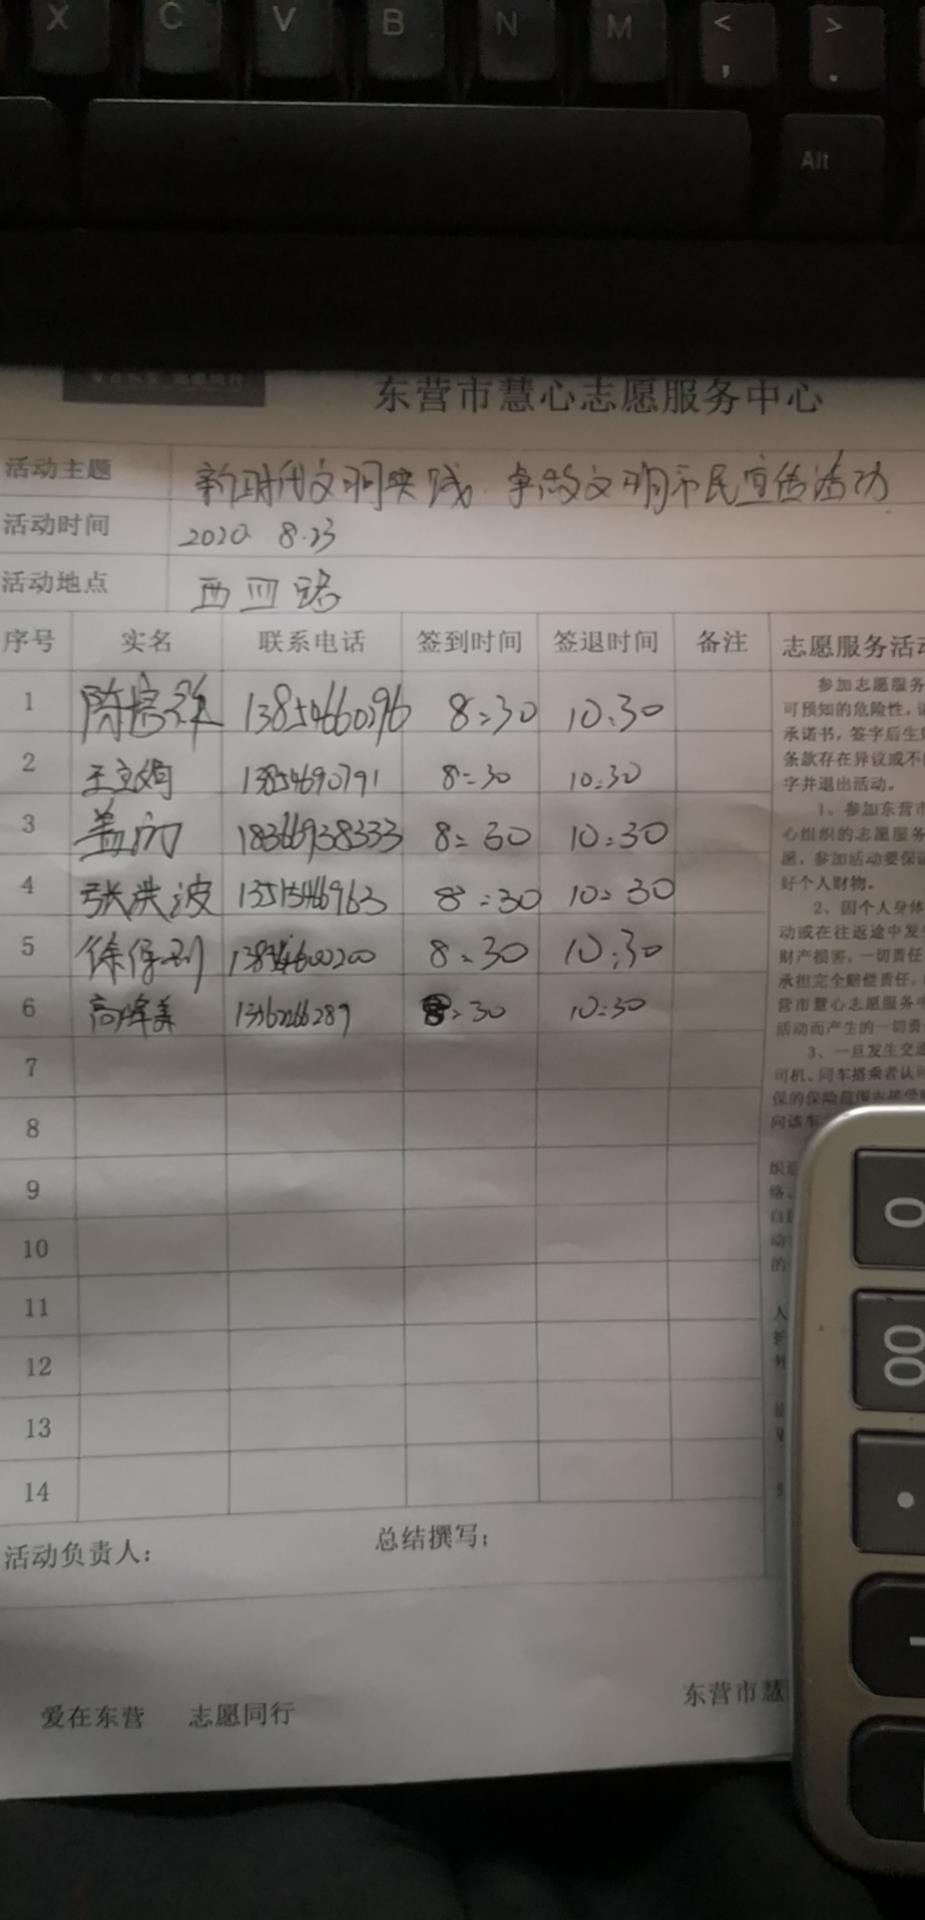 X C V B N M < ,  > .
Alt
东营市慧心志愿服务中心
活动主题 新时代文明实践 争做文明市民宣传活动
活动时间 2020 8.23
活动地点 西四路
序号 实名 联系电话 签到时间 签退时间 备注 志愿服务活动
1 13854660296 8:30 10:30
2 13854690791 8:30 10:30
3 18366938333 8:30 10:30
4 张洪波 13515466963 8:30 10:30
5 8:30 10:30
6 8:30 10:30
7
8
9
10
11
12
13
14
参加志愿服务
可预知的危险性，
承诺书，签字后生
条款存在异议或不
字并退出活动。
1、参加东营市
心组织的志愿服务
愿，参加活动要保
好个人财物。
2、因个人身体
动或在往返途中发生
财产损害，一切责任
承担完全赔偿责任，
营市慧心志愿服务中
活动而产生的一切责
3、一旦发生交通
司机、同车搭乘者认可
保的保险范围
向该车
活动负责人： 总结撰写：
爱在东营 志愿同行 东营市慧
0
00